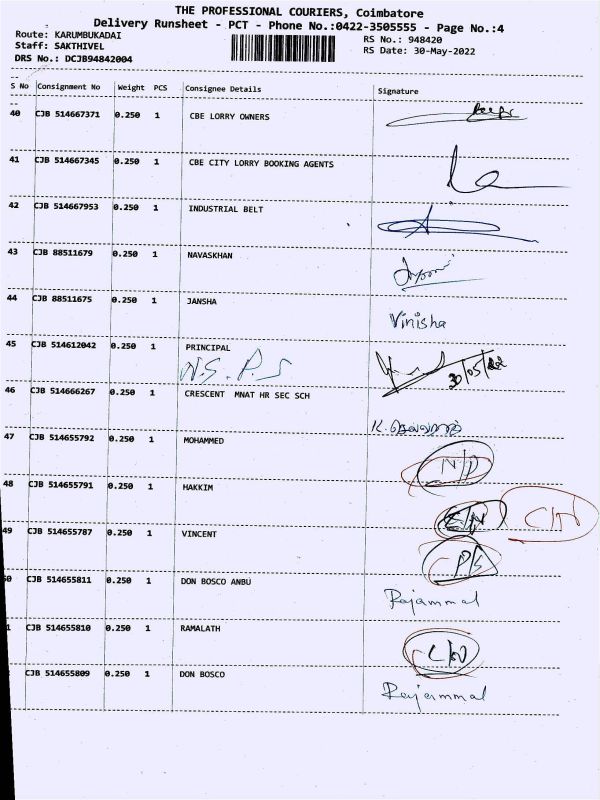 THE PROFESSIONAL COURIERS, Coimbatore
Delivery Runsheet - PCT - Phone No.:0422-3505555 - Page No.:4
Route: KARUMBUKADAI RS No.: 948420
Staff: SAKTHIVEL RS Date: 30-May-2022
DRS No.: DCJB94842004
S No Consignment No Weight PCS Consignee Details Signature
40 CJB 514667371 0.250 1 CBE LORRY OWNERS
41 CJB 514667345 0.250 1 CBE CITY LORRY BOOKING AGENTS
42 CJB 514667953 0.250 1 INDUSTRIAL BELT
43 CJB 88511679 0.250 1 NAVASKHAN
44 CJB 88511675 0.250 1 JANSHA Vinisha
45 CJB 514612042 0.250 1 PRINCIPAL
N.S.P.S 30/05/22
46 CJB 514666267 0.250 1 CRESCENT MNAT HR SEC SCH
47 CJB 514655792 0.250 1 MOHAMMED N/P
48 CJB 514655791 0.250 1 HAKKIM C/N
49 CJB 514655787 0.250 1 VINCENT P/S
0 CJB 514655811 0.250 1 DON BOSCO ANBU Rajammal
1 CJB 514655810 0.250 1 RAMALATH L/N
CJB 514655809 0.250 1 DON BOSCO Rajammal